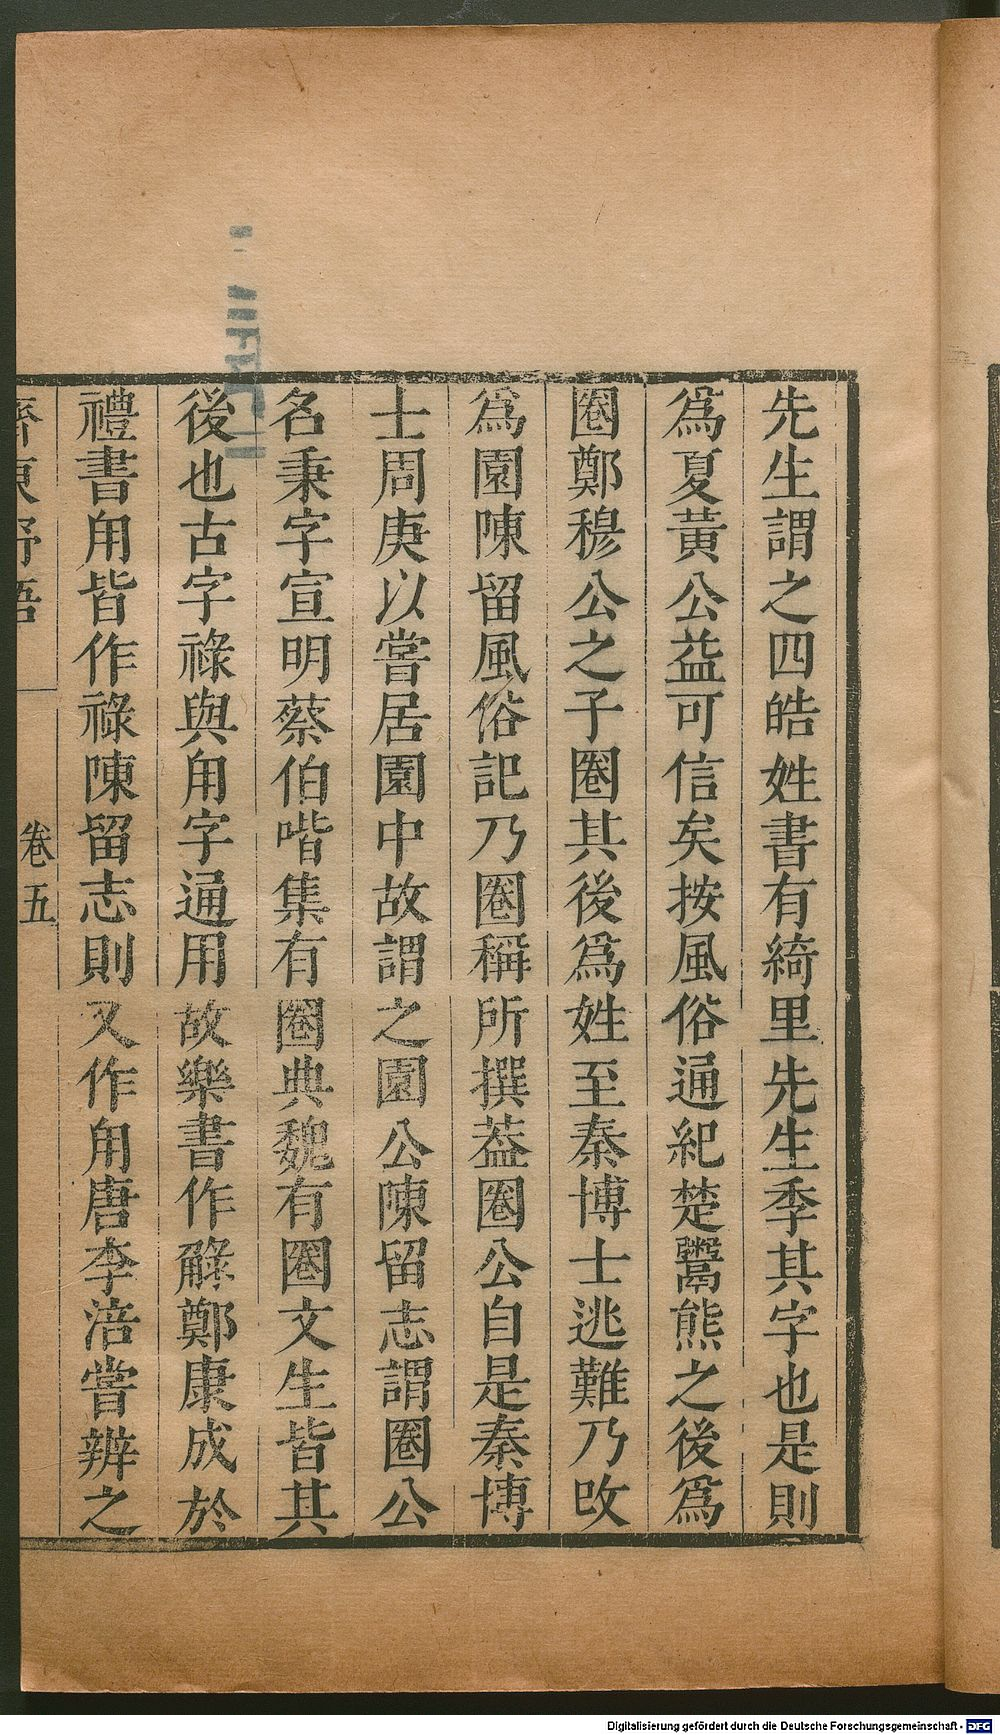 先生謂之四皓姓書有綺里先生季其字也是則
為夏黃公益可信矣按風俗通紀楚鬻熊之後為
圈鄭穆公之子圈其後為姓至秦博士逃難乃改
為園陳留風俗記乃圈稱所撰葢圈公自是秦博
士周庚以嘗居園中故謂之園公陳留志謂圈公
名秉字宣明蔡伯喈集有圈典魏有圈文生皆其
後也古字祿與甪字通用故樂書作觮鄭康成於
禮書甪皆作祿陳留志則又作甪唐李涪嘗辨之
齊東野語
卷五
Digitalisierung gefördert durch die Deutsche Forschungsgemeinschaft - DFG